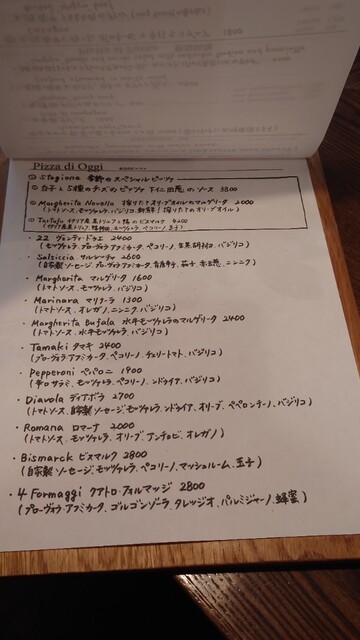 Pizza di Oggi
Stagiona 季節のスペシャルピッツァ
白子と5種のチーズのピッツァ 下仁田葱のソース 3800
Margherita Novello 搾りたてオリーブオイルのマルゲリータ 2000
(トマトソース、モッツァレラ、バジリコ、搾りたてのオリーブオイル)
Tartufo イタリア産黒トリュフと鴨のビスマルク 4200
・22 ヴェンティドゥエ 2400
(モッツァレラ、プローヴォラアフミカータ、ペコリーノ、生黒胡椒、バジリコ)
・Salsiccia サルシッチャ 2600
(自家製ソーセージ、プローヴォラアフミカータ、茄子、赤玉葱、ニンニク)
・Margherita マルゲリータ 1600
(トマトソース、モッツァレラ、バジリコ)
・Marinara マリナーラ 1300
(トマトソース、オレガノ、ニンニク、バジリコ)
・Margherita Bufala 水牛モッツァレラのマルゲリータ 2400
(トマトソース、水牛モッツァレラ、バジリコ)
・Tamaki タマキ 2400
(プローヴォラアフミカータ、ペコリーノ、チェリートマト、バジリコ)
・Pepperoni ペパロニ 1900
(辛口サラミ、モッツァレラ、ペコリーノ、ンドゥイア、バジリコ)
・Diavola ディアボラ 2700
(トマトソース、自家製ソーセージ、モッツァレラ、ンドゥイア、オリーブ、ペペロンチーノ、バジリコ)
・Romana ロマーナ 2000
(トマトソース、モッツァレラ、オリーブ、アンチョビ、オレガノ)
・Bismarck ビスマルク 2800
(自家製ソーセージ、モッツァレラ、ペコリーノ、マッシュルーム、玉子)
・4 Formaggi クアトロ・フォルマッジ 2800
(プローヴォラアフミカータ、ゴルゴンゾーラ、タレッジオ、パルミジャーノ、蜂蜜)